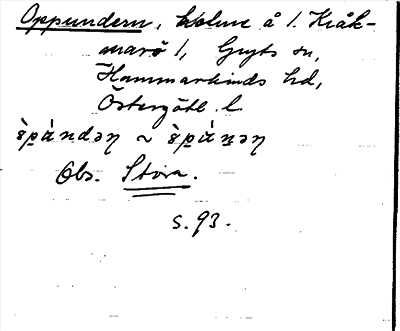 Oppundern, holme å l. Kråk-
marö l, Gryts sn,
Hammarkinds hd,
Östergötl. l.
Obs. Stora.
s. 93.